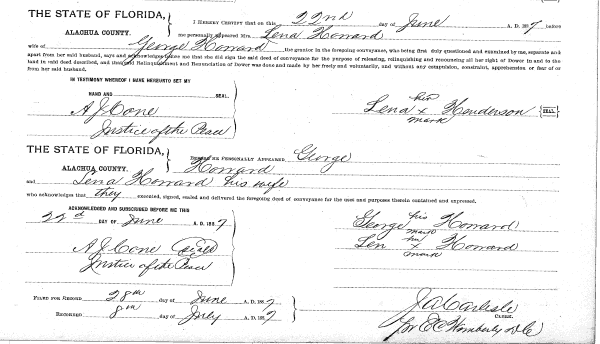 THE STATE OF FLORIDA,
ALACHUA COUNTY.
I HEREBY CERTIFY that on this 22nd day of June A. D. 1887 before
me personally appeared Mrs. Lena Howard
wife of George Howard the grantor in the foregoing conveyance, who being first duly questioned and examined by me, separate and
apart from her said husband, says and acknowledges to me that she did sign the said deed of conveyance for the purpose of releasing, relinquishing and renouncing all her right of Dower in and to the
land in said deed described, and that said Relinquishment and Renunciation of Dower was done and made by her freely and voluntarily, and without any compulsion, constraint, apprehension, or fear of or
from her said husband.
IN TESTIMONY WHEREOF I HAVE HEREUNTO SET MY
HAND AND SEAL
A J Cone
Justice of the Peace
Lena her x mark Henderson SEAL
THE STATE OF FLORIDA,
ALACHUA COUNTY.
BEFORE ME PERSONALLY APPEARED George
Howard
and Lena Howard his wife
who acknowledges that they executed, signed, sealed and delivered the foregoing deed of conveyance for the uses and purposes therein contained and expressed.
ACKNOWLEDGED AND SUBSCRIBED BEFORE ME THIS
22d DAY OF June A. D. 1887
A J Cone Seal
Justice of the Peace
George his mark Howard
Len her x mark Howard
FILED FOR RECORD 28th day of June A. D. 1887
RECORDED 8th day of July A. D. 1887
J A Carlisle
CLERK.